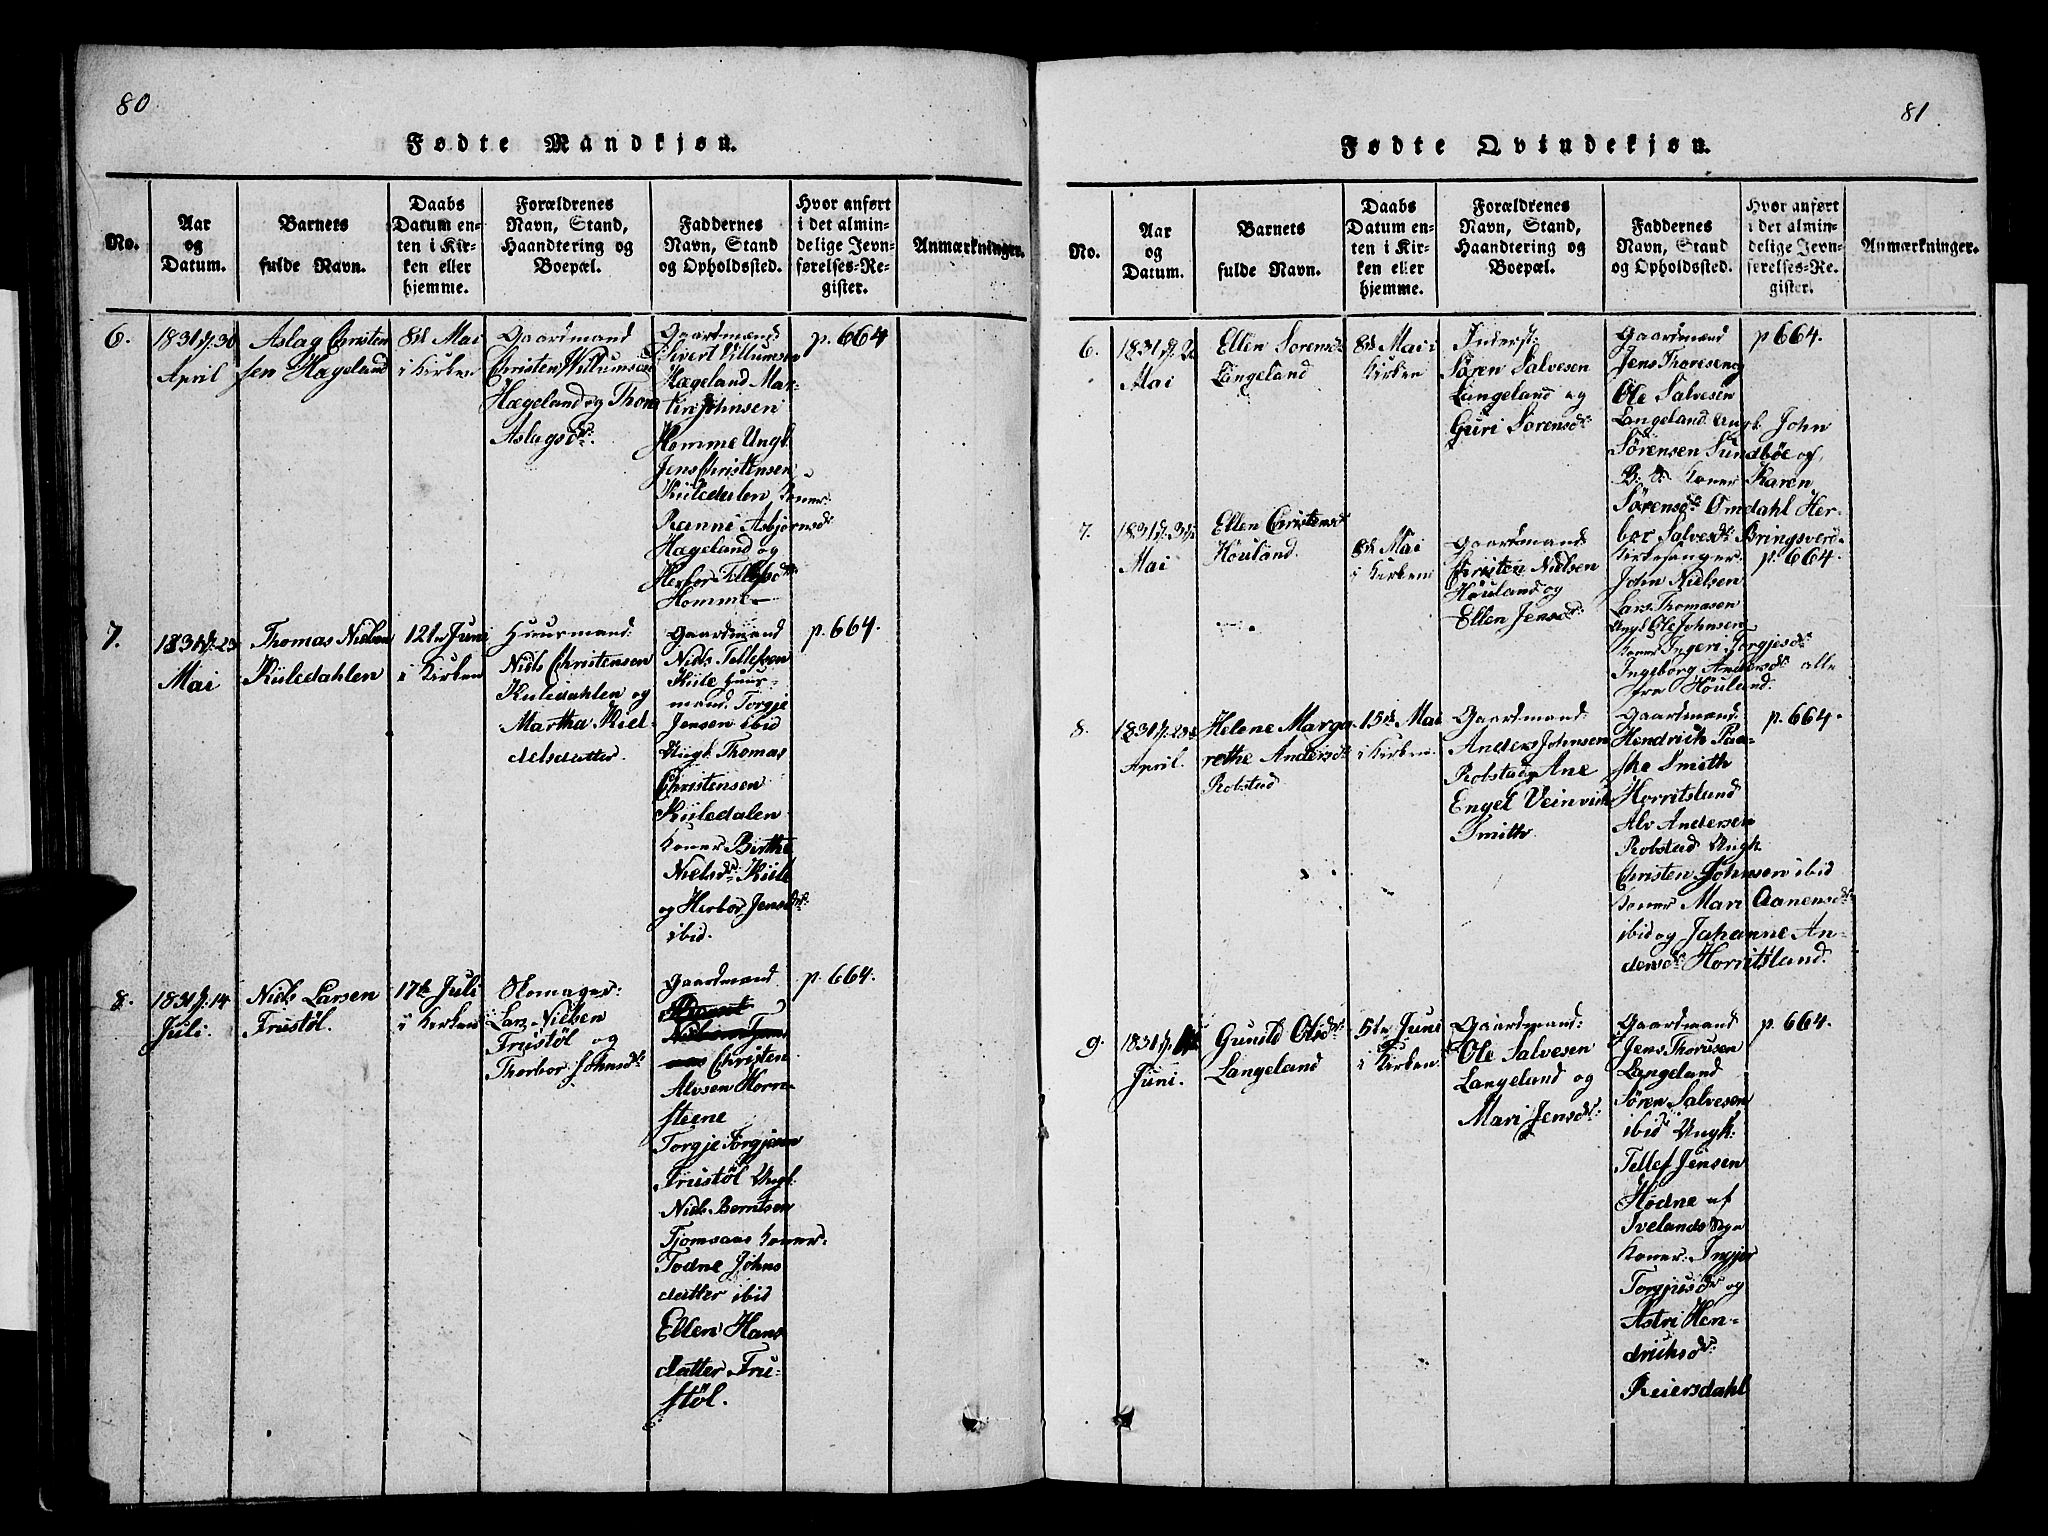 80
Fødte Mandkjøn.
No.
Aar
og
Datum.
Barnets
fulde Navn.
Daabs
Datum en-
ten i Kir-
ken eller
hjemme.
Forældrenes
Navn, Stand,
Haandtering og
Boepæl.
Faddernes
Navn, Stand
og Opholdssted.
Hvor anført
i det almin-
delige Jevn-
førelses-Re-
gister.
Anmærkninger.
6.
1831 d. 30
April
Aslag Christen
sen Hægeland
8de Mai
i Kirken
Gaardmand
Christen Willumsen
Hægeland og Thone
Aslagsdr.
Gaardmænd
Sivert Villumsen
Hægeland Mar-
tin Johnsen
Homme Ungk.
Jens Christensen
Kuledalen, Koner
Ranni Asbjørnsdr
Hægeland og
Herbor Tellefsdr.
Homme
p. 664
7.
1831 d. 23
Mai
Thomas Nielsen
Kuledahlen
12te Juni
i Kirken
Huusmand
Niels Christensen
Kuledahlen og
Martha Kied-
delsdatter.
Gaardmand
Niels Tellefsen
Kule Huus-
mand Torgje
Jensen ibid
Ungk. Thomas
Christensen
Kuledalen
Koner Birthe
Nielsdr. Kule
og Herbor Jensdr.
ibid.
p. 664.
8.
1831 d. 14
Juli.
Niels Larsen
Frustøl.
17de Juli
i Kirken
Skomager:
Lars Nielsen
Frustøl og
Thorbor Johnsdr.
Gaardmand
Christen
Alvsen Horn-
steene
Torgje Torgjesen
Frustøl Ungk.
Niels Berntsen
Tjomsaas Koner
Todne Johns
datter ibid
Ellen Hans
datter Fru-
støl.
p. 664.
81
Fødte Qvindekjøn.
No.
Aar
og
Datum.
Barnets
fulde Navn.
Daabs
Datum en-
ten i Kir-
ken eller
hjemme.
Forældrenes
Navn, Stand,
Haandtering og
Boepæl.
Faddernes
Navn, Stand
og Opholdssted.
Hvor anført
i det almin-
delige Jevn-
førelses-Re-
gister.
Anmærkninger.
6.
1831 d. 2
Mai
Ellen Sorensdr
Langeland
8de Mai i
Kirken
Inderst:
Søren Salvesen
Langeland og
Guri Sorensdr
Gaardmænd
Jens Thoresen og
Ole Salvesen
Langeland Ungk. John
Sørensen Sundbøe og
Koner Karen
Sørensdr. Omdahl Her-
bor Salvesdr. Bringsverd
p 664.
7.
1831 d. 3die
Mai
Ellen Christensdr
Houland.
8de Mai
i Kirken
Gaardmand
Christen Nielsen
Houland og
Ellen Jensdr.
Kirkesanger
John Nielsen
Lars Thomasen
Ungk Ole Johnsen
Koner Ingeri Torgjesdr
Ingeborg Andersdr. alle
fra Houland.
p. 664.
8.
1831 d. 23de
April.
Helene Marga
rethe Andersdr
Robstad
15de Mai
i Kirken
Gaardmand
Anders Johnsen
Robstad og Ane
Engel Veinvich
Smith
Gaardmand
Hendrich Paa-
ske Smith
Horritsland
Alv Andersen
Robstad Ungk
Christen Johnsen ibid
Koner Mari Aanensdr
ibid og Johanne An-
dersdr Horritsland.
p. 664.
9.
1831 d.
Juni.
Gunild Olsdr
Langeland
5te Juni
i Kirken
Gaardmand:
Ole Salvesen
Langeland og
Mari Jensdr.
Gaardmand
Jens Thorusen
Langeland
Søren Salvesen
ibid Ungk:
Tellef Jensen
Hodne af
Ivelands Sogn
Koner: Ingjer
Torgjusdr og
Astri Hen-
drichsdr.
Reiersdahl
p. 664.